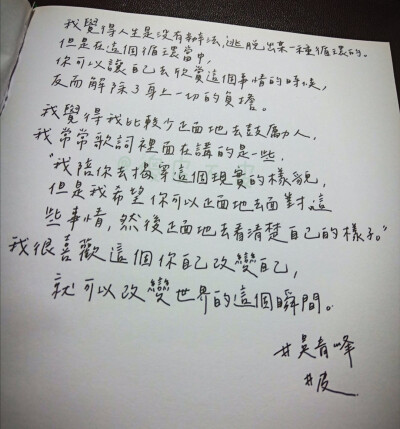 我覺得人生是沒有辦法,逃脫出某一種循環的。
但是在這個循環當中,
你可以讓自己去欣賞這個事情的時候,
反而解除了身上一切的負擔。
我覺得我比較少正面地去鼓勵人,
我常常歌詞裡面在講的是一些,
"我陪你去描寫這個現實的樣貌,
但是我希望你可以正面地去面對這
些事情,然後正面地去看清楚自己的樣子。"
我很喜歡這個你自己改變自己,
就可以改變世界的這個瞬間。
#吳青峰
#皮